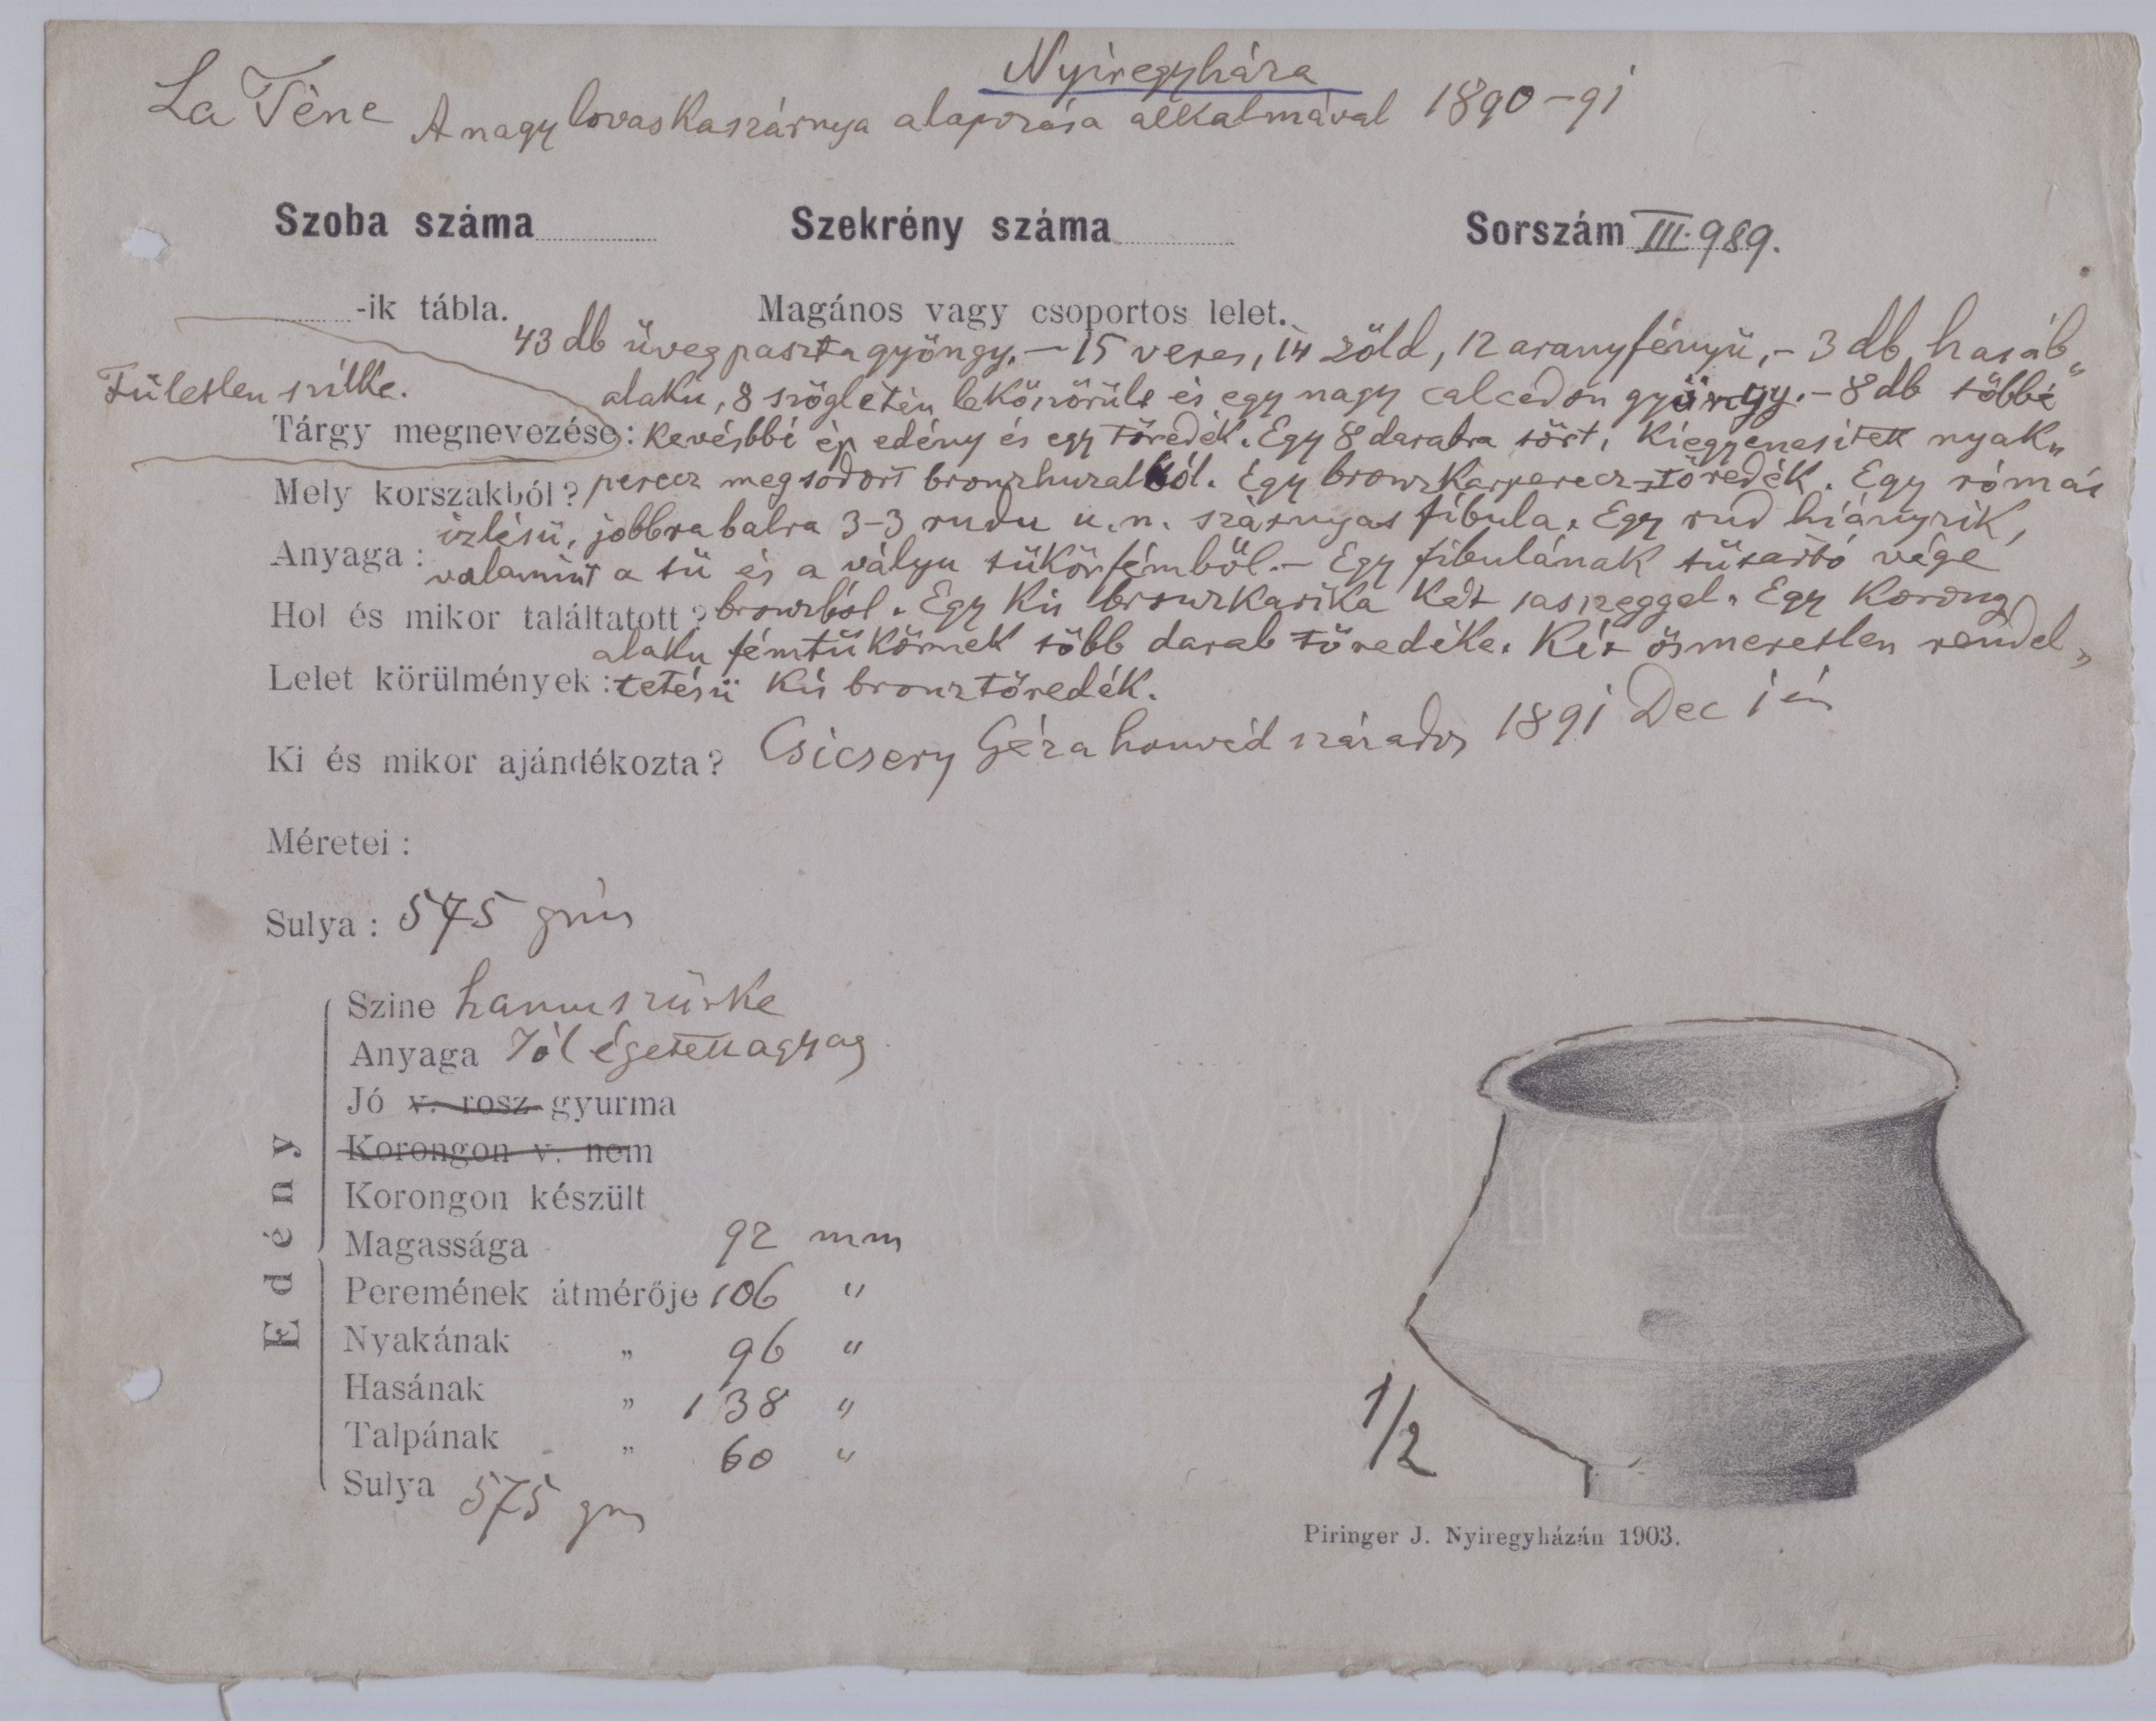 Nyiregyháza
La Tène A nagy lovas kaszárnya alapozása alkalmával 1890-91
Szoba száma Szekrény száma Sorszám III. 989.
-ik tábla. Magános vagy csoportos lelet.
43 db üvegpaszta gyöngy. – 15 veres, 14 zöld, 12 aranyfényü, – 3 db hasáb„
Fületlen szilke.
alaku, 8 szögletén leköszörült és egy nagy calcedon gyöngy. – 8 db többé
Tárgy megnevezése: kevésbbé ép edény és egy töredék. Egy 8 darabra tört, kiegyenesitett nyak„
Mely korszakból? perecz megsodort bronzhuzalból. Egy bronzkarperecz-töredék. Egy római
izlésü, jobbra balra 3-3 rudu u. n. szárnyas fibula. Egy rud hiányzik,
Anyaga: valamint a tü és a vályu tükörfémből. – Egy fibulának tütartó vége
Hol és mikor találtatott? bronzból. Egy kis bronzkarika két sasszeggel. Egy korong
alaku fémtükörnek több darab töredéke. Két ösmeretlen rendel„
Lelet körülmények: tetésü kis bronztöredék.
Ki és mikor ajándékozta? Csicsery Géza honvéd százados 1891 Dec 1 én
Méretei:
Sulya: 575 grm
Edény
Szine hamuszürke
Anyaga Jól égetett agyag
Jó v. rosz gyurma
Korongon v. nem
Korongon készült
Magassága 92 mm
Peremének átmérője 106 "
Nyakának „ 96 "
Hasának „ 138 "
Talpának „ 60 "
Sulya 575 grm
1/2
Piringer J. Nyiregyházán 1903.